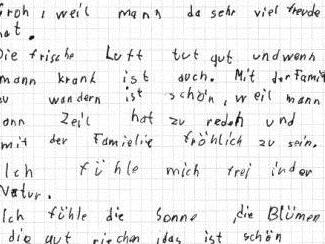 froh, weil mann da sehr viel freude
hat.
Die frische Luft tut gut und wenn
mann krank ist auch. Mit der Famil
zu wandern ist schön, weil mann
dann Zeil hat zu redeh und
mit der Famielie fröhlich zu sein.
Ich fühle mich frei in der
Natur.
Ich fühle die Sonne, die Blümen
die gut riechen, das ist schön